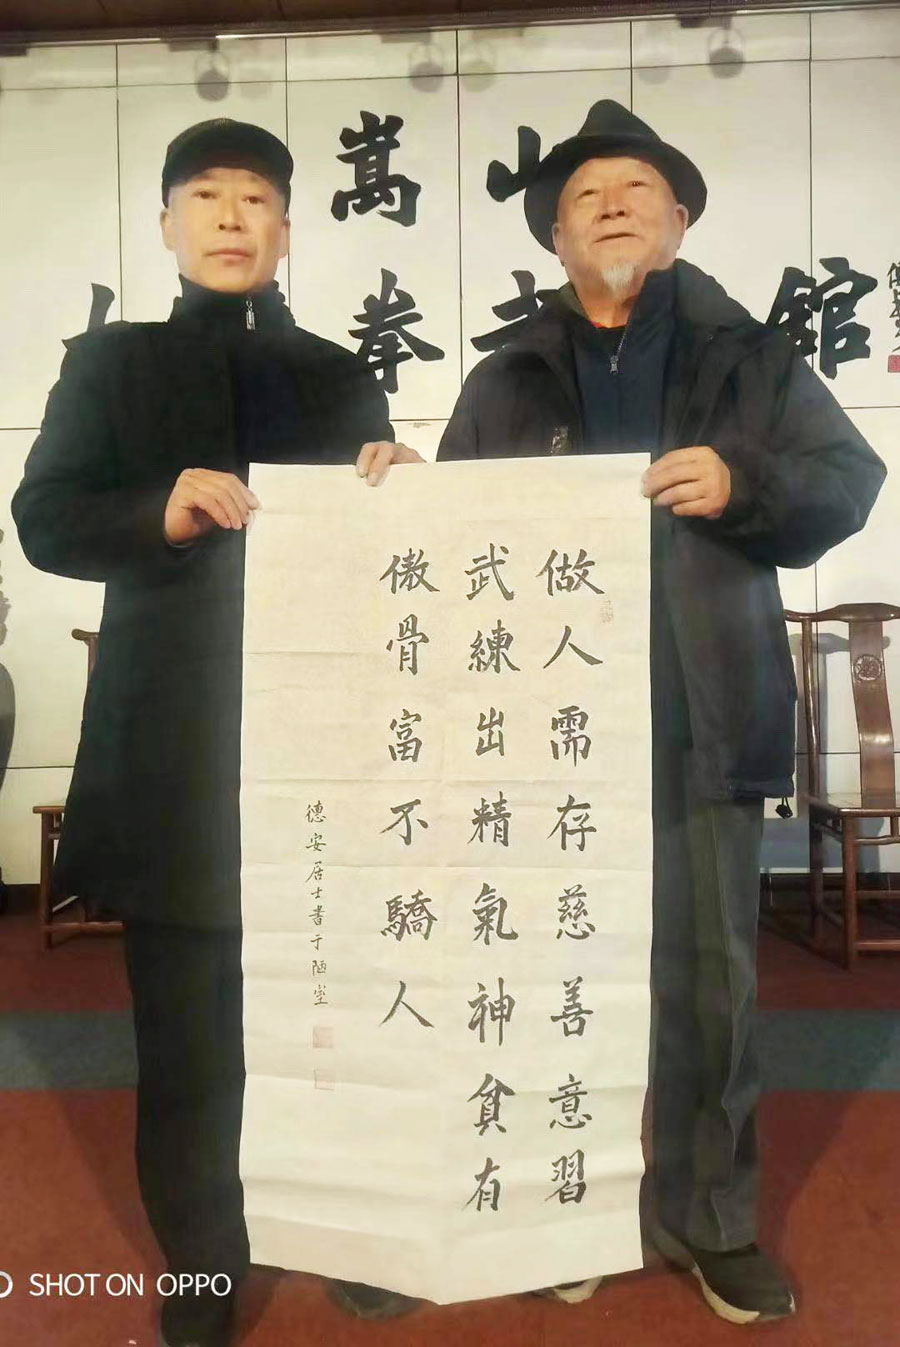 嵩山
拳武館
做人需存慈善意習
武練出精氣神貧有
傲骨富不驕人
德安居士書于陋室
SHOT ON OPPO